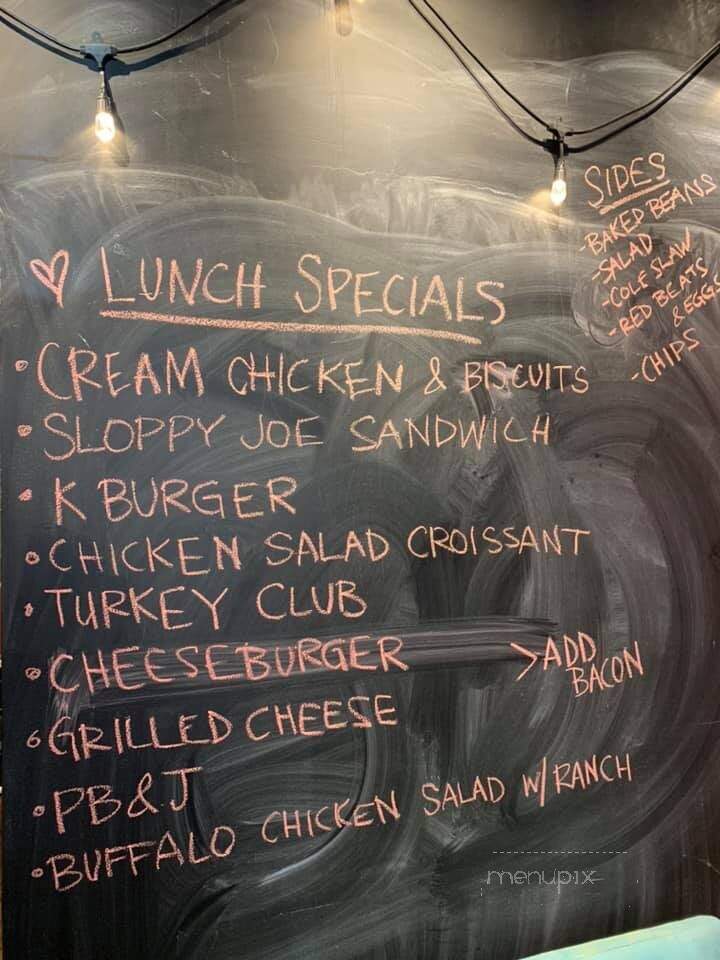 ♡ LUNCH SPECIALS
• CREAM CHICKEN & BISCUITS
• SLOPPY JOE SANDWICH
• K BURGER
• CHICKEN SALAD CROISSANT
• TURKEY CLUB
• CHEESEBURGER >ADD BACON
• GRILLED CHEESE
• PB&J
• BUFFALO CHICKEN SALAD W/ RANCH
SIDES
-BAKED BEANS
-SALAD
-COLE SLAW
-RED BEATS
& EGGS
-CHIPS
menupix